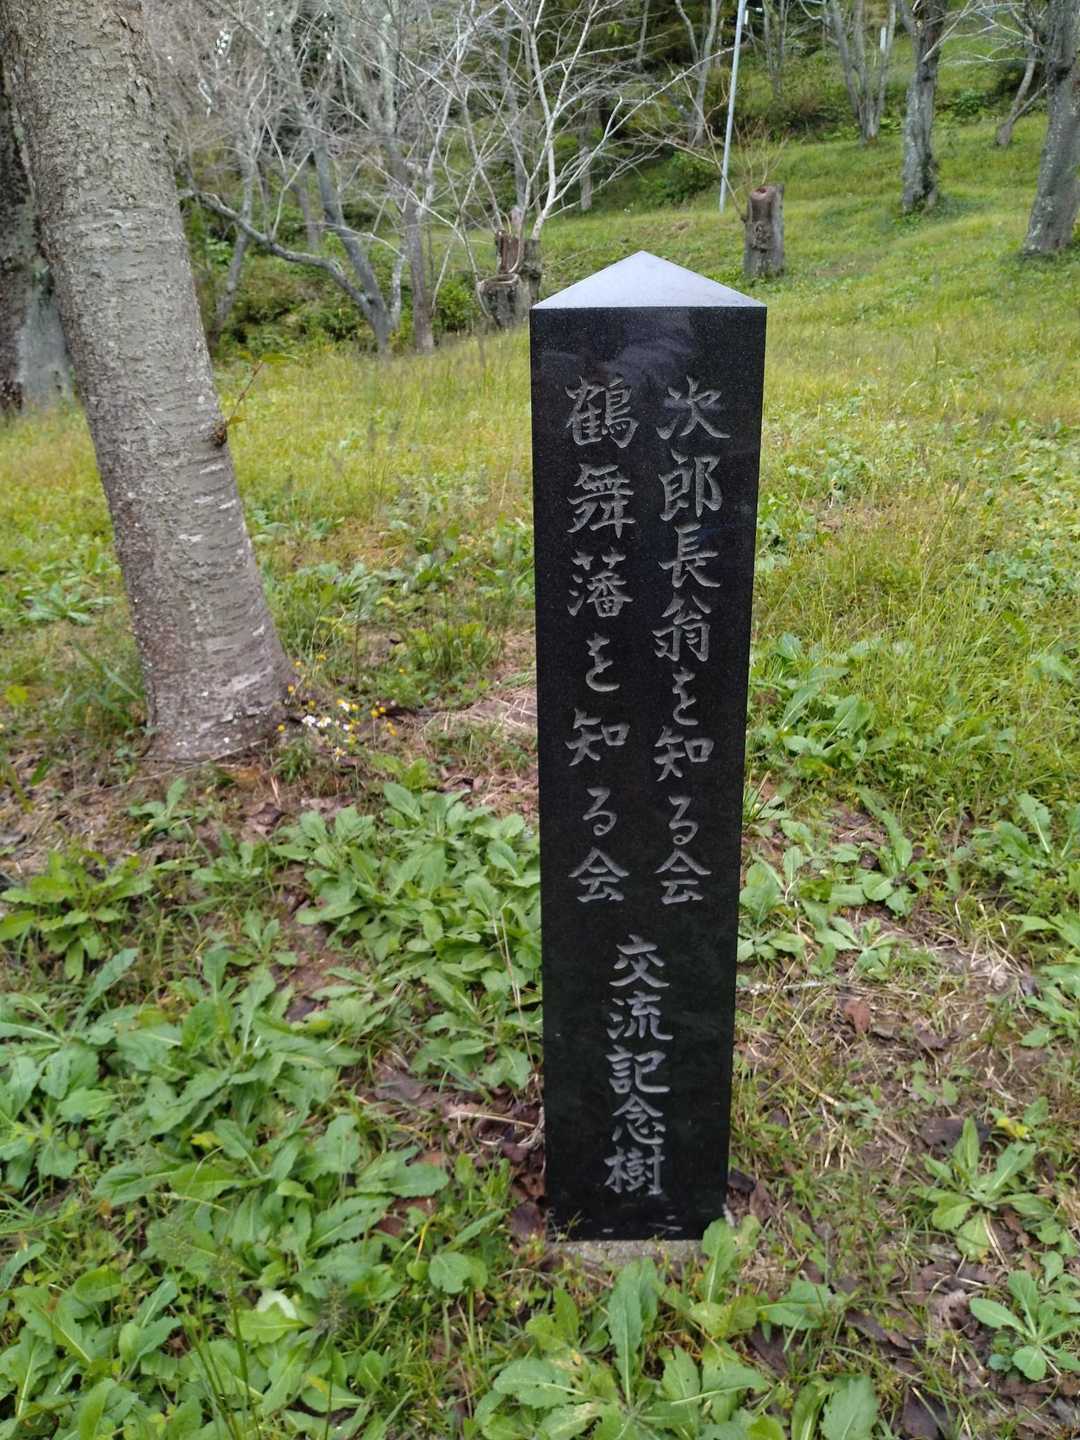 次郎長翁を知る会
鶴舞藩を知る会
交流記念樹